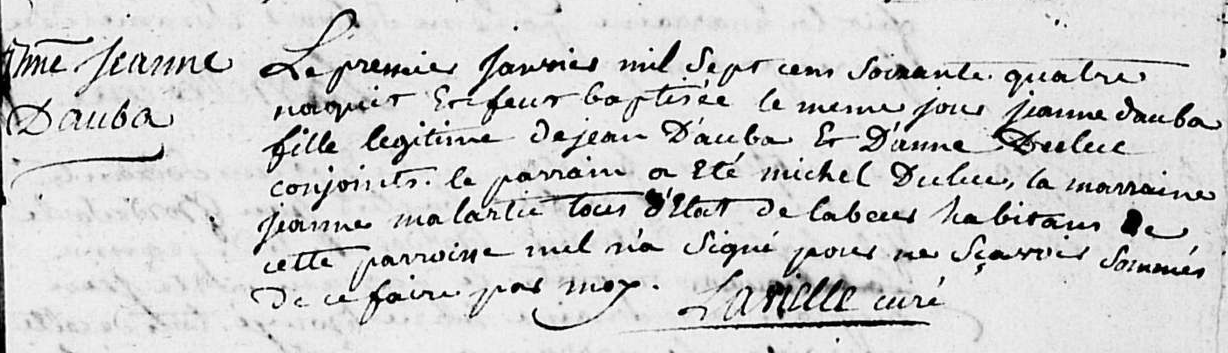 jeanne
Dauba
Le premier janvier mil sept cens soixante quatre
naquit Et feut baptisée le meme jour jeanne dauba
fille legitime de jean Dauba Et D'anne Duluc
conjoints. le parrain a Eté michel Duluc, la marraine
jeanne malartic tous d'Etat de labeur habitans de
cette parroisse nul n'a signé pour ne sçavoir sommés
de ce faire par moy. Lanielle curé